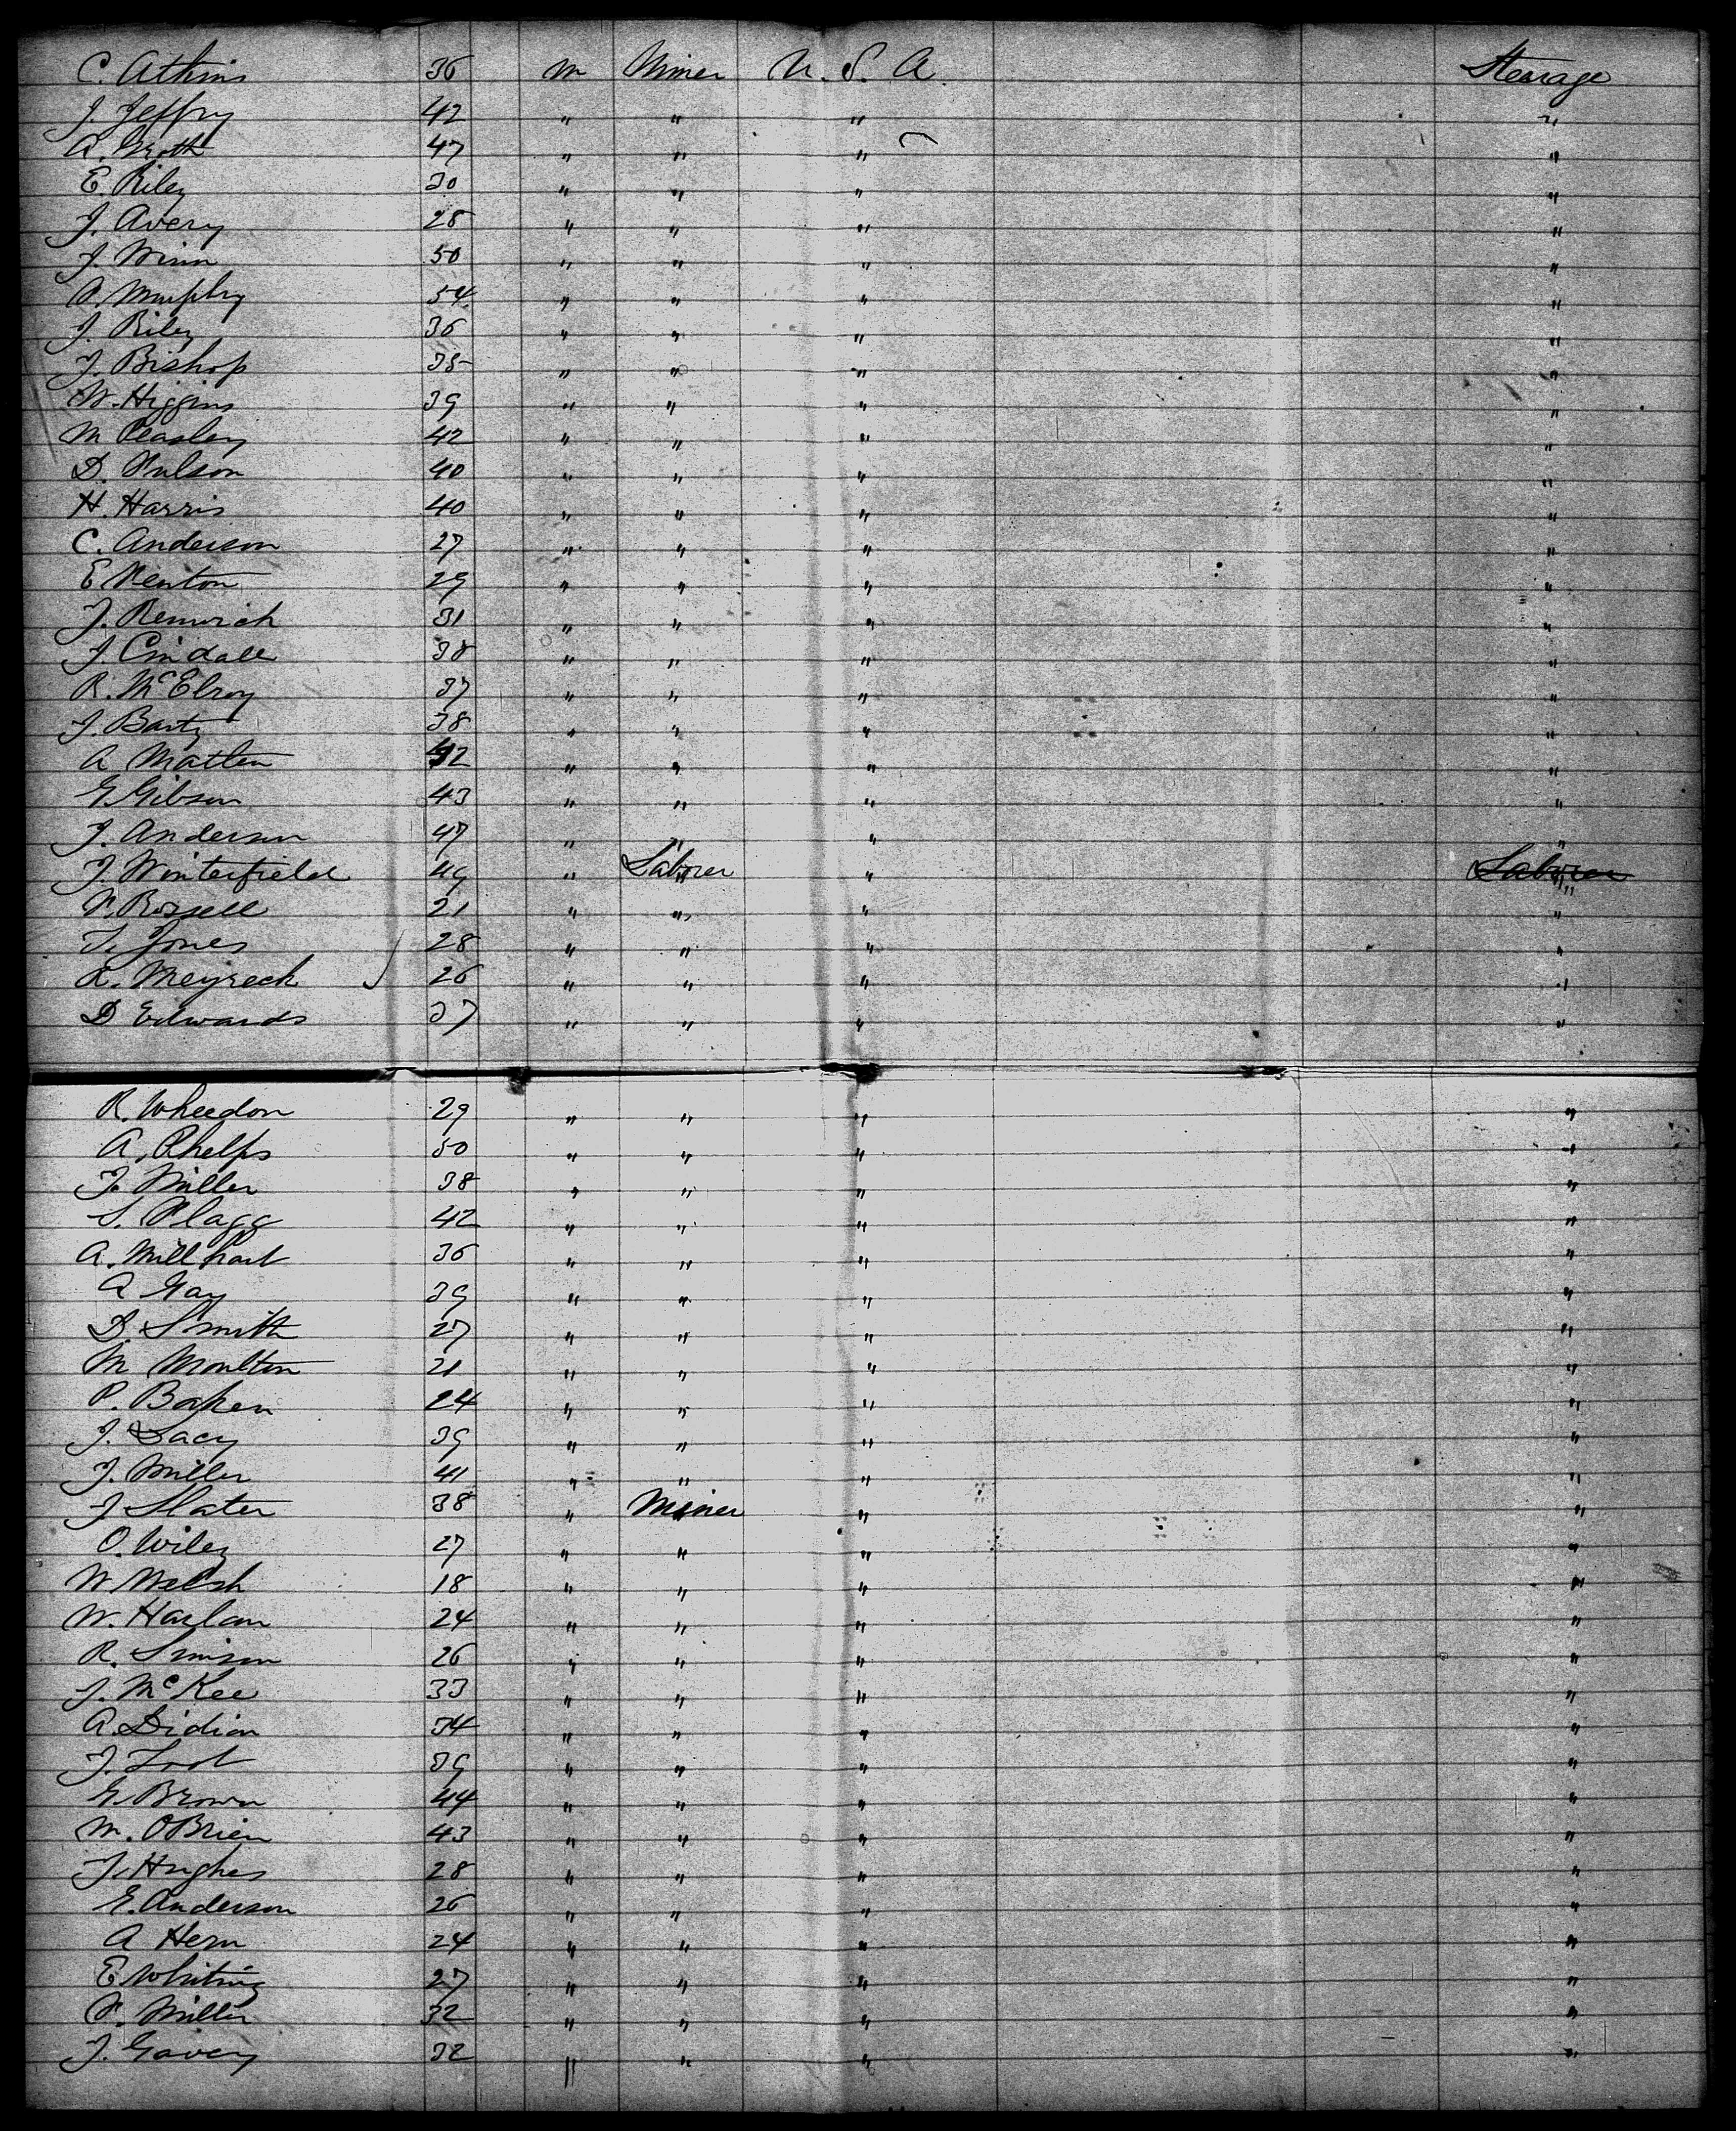 C. Atkins 36 m Miner U. S. A. Stearage
J Jeffry 42 " " " "
A. Groth 47 " " " "
E. Riley 30 " " " "
J. Avery 28 " " " "
J. Winn 50 " " " "
A. Murphy 54 " " " "
J. Riley 36 " " " "
J. Bishop 35 " " " "
W. Higgins 39 " " " "
M Peasley 42 " " " "
D. 40 " " " "
H. Harris 40 " " " "
C. Anderson 27 " " " "
E Newton 29 " " " "
J. Renwick 31 " " " "
J. Cindall 38 " " " "
R. McElroy 37 " " " "
J. Barty 38 " " " "
A Matten 42 " " " "
G Gibson 43 " " " "
J. Anderson 47 " " " "
J Winterfield 49 " Laborer " Laborer "
N. Rossell 21 " " " "
T. Jones 28 " " " "
R. Meyreck 26 " " " "
D Edwards 37 " " " "
R. Wheedon 29 " " " "
A. Phelps 50 " " " "
J. Miller 38 " " " "
S. Flagg 42 " " " "
A. Millhart 36 " " " "
A Gay 39 " " " "
D. Smith 27 " " " "
M Moulton 21 " " " "
P. Baken 24 " " " "
J. Lacy 39 " " " "
J. Miller 41 " " " "
J Slater 38 " Miner " "
O. Wiley 27 " " " "
W Welsh 18 " " " "
W. Harlan 24 " " " "
R. Simson 26 " " " "
J. McKee 33 " " " "
A. Didion 34 " " " "
J. 39 " " " "
G. Brown 44 " " " "
M. OBrien 43 " " " "
J. Hughes 28 " " " "
E. Anderson 26 " " " "
A Hern 24 " " " "
E Whiting 27 " " " "
N. Miller 32 " " " "
J. Gavery 32 " " " "